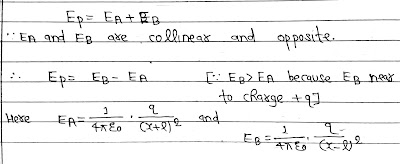 Ep = EA + EB
∵ EA and EB are collinear and opposite.
∴ Ep = EB - EA [∵ EB > EA because EB near
to charge +q]
Here EA = 1/4πε0 · q/(x+l)² and
EB = 1/4πε0 · q/(x-l)²